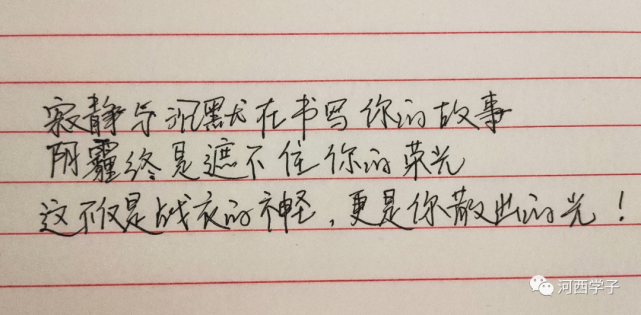 寂静与沉默在书写你的故事
阴霾终是遮不住你的荣光
这不仅是战衣的神经，更是你散出的光！
河西学子